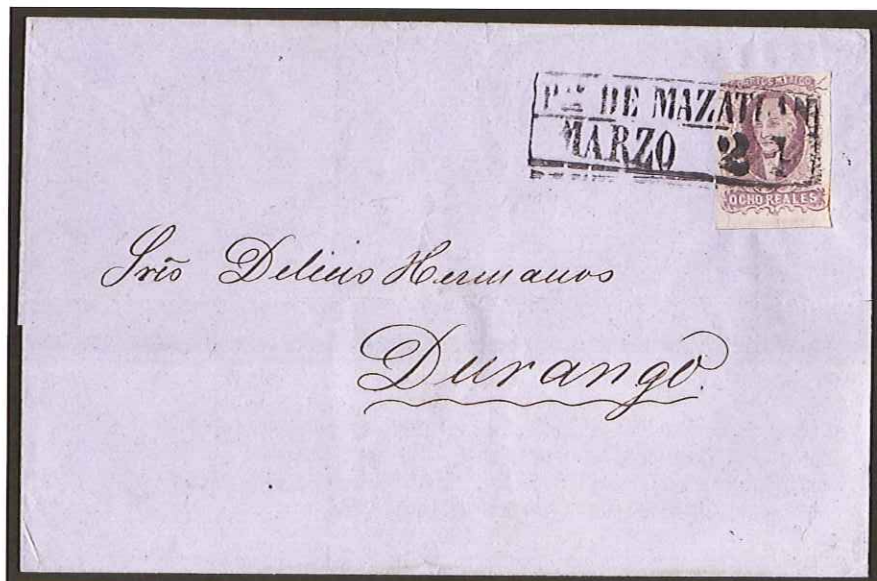 DE MAZATLAN
MARZO 21
CORREOS MEJICO
OCHO REALES
Sres Delius Hermanos
Durango.